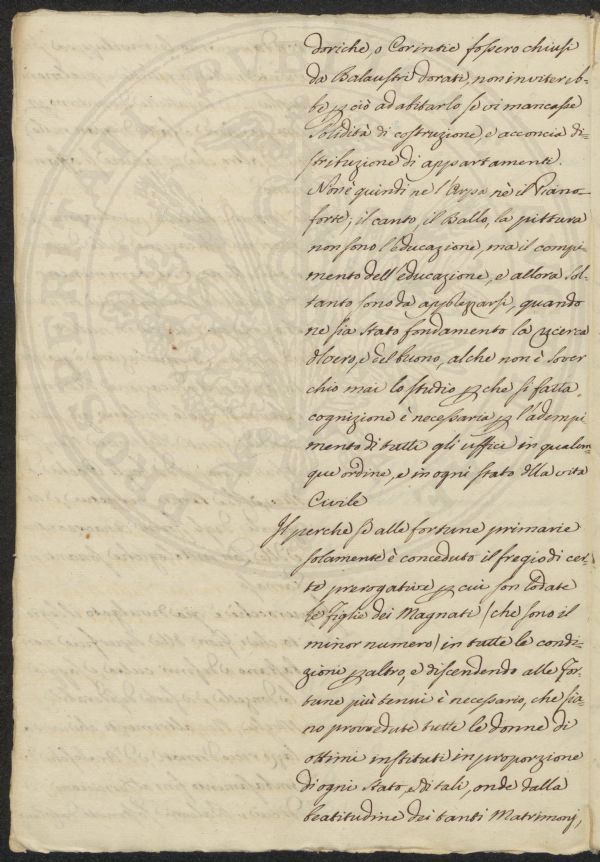 doriche, o Corintie fossero chiusi
da Balaustri dorati, non inviterib-
be p ciò ad abitarlo se vi mancasse
Solidità di costruzione, e acconcia di-
stribuzione di appartamenti.
Non è quindi ne l'Arpa nè il Piano-
forte, il canto, il Ballo, la pittura
non sono l'educazione, ma il compi-
mento dell'educazione, e allora Sol-
tanto sono da apprezzarsi, quando
ne sia stato fondamento la ricerca
del vero, e del buono, al che non è sover
chio mai lo studio p che si fatta
cognizione è necessaria p l'adempi
mento di tutti gli uffici in qualun-
que ordine, e in ogni stato dlla vita
Civile
Il perche se alle fortune primarie
solamente è conceduto il fregio di cer-
te prerogative p cui son lodate
le figlie dei Magnati (che sono il
minor numero) in tutte le condi-
zioni p altro, e discendendo alle For-
tune più tenui è necessario, che sia-
no provvedute tutte le donne di
ottimi instituti in proporzione
di ogni stato, e di tali, onde dalla
beatitudine dei tanti Matrimonj,
PUBLI